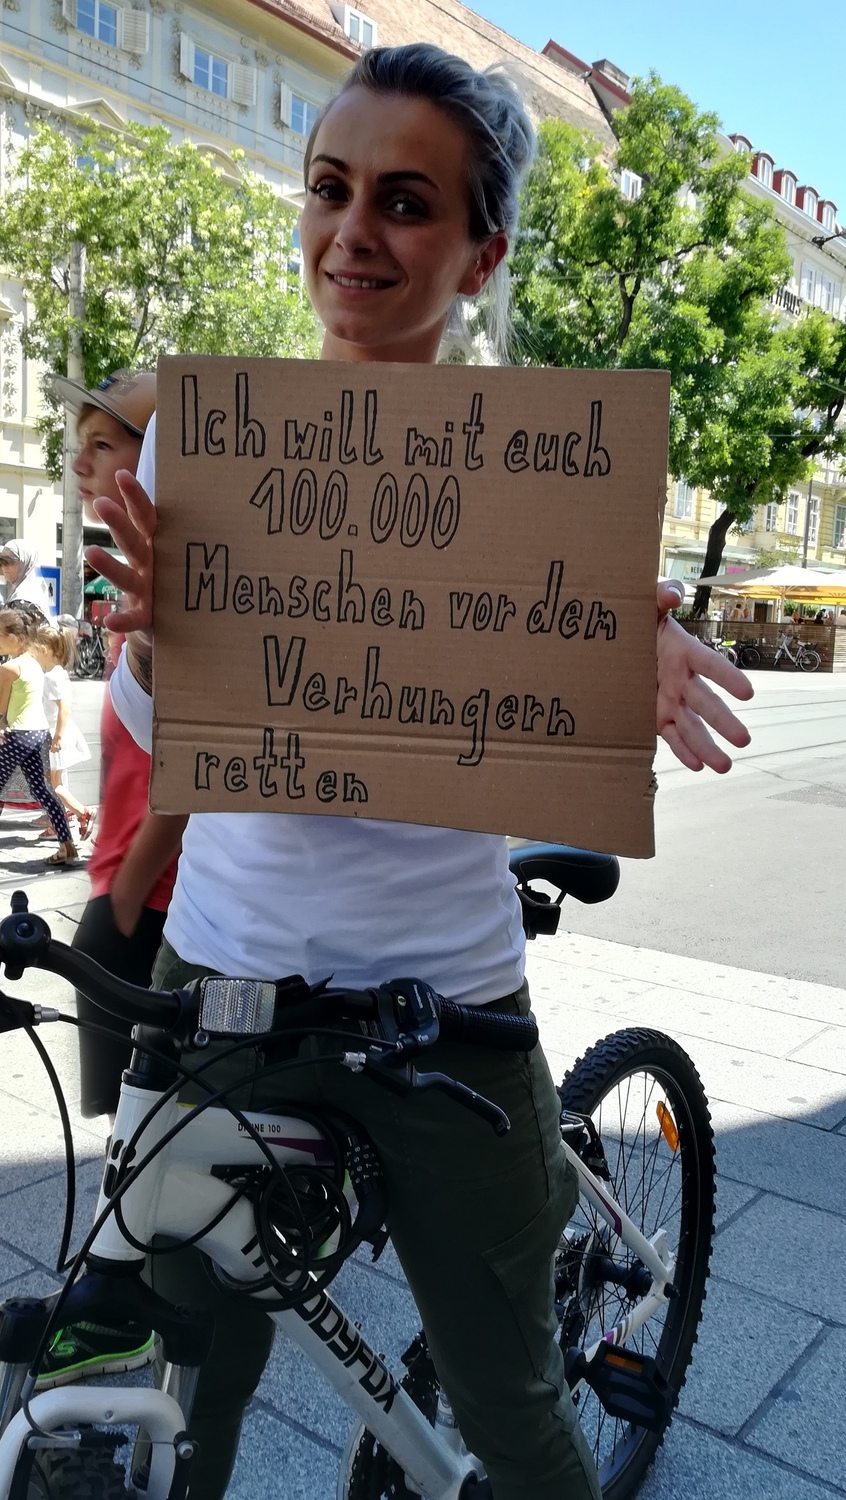 Ich will mit euch
100.000
Menschen vor dem
Verhungern
retten
DIVINE 100
MUDDYFOX